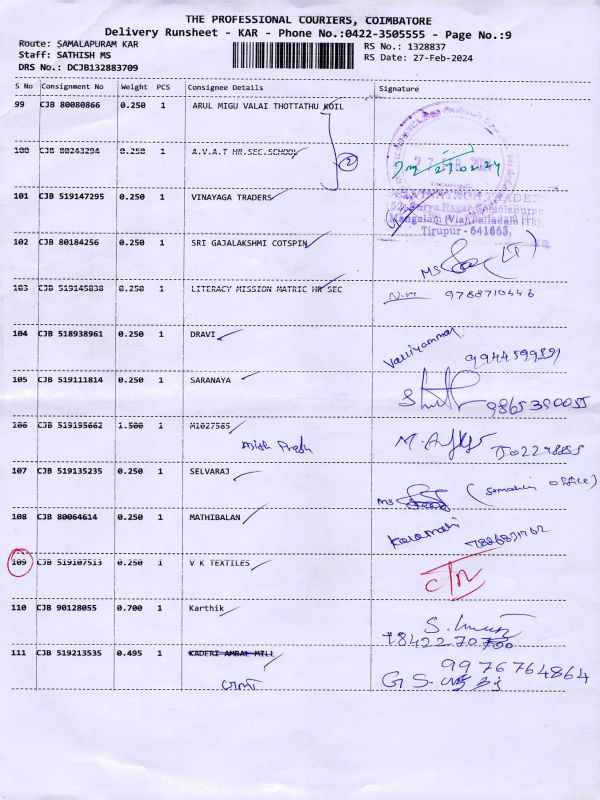 THE PROFESSIONAL COURIERS, COIMBATORE
Delivery Runsheet - KAR - Phone No.:0422-3505555 - Page No.:9
Route: SAMALAPURAM KAR
Staff: SATHISH MS
DRS No.: DCJB132883709
RS No.: 1328837
RS Date: 27-Feb-2024
S No Consignment No Weight PCS Consignee Details Signature
99 CJB 80080866 0.250 1 ARUL MIGU VALAI THOTTATHU KOIL
2
100 CJB 80243294 0.250 1 A.V.A.T HR.SEC.SCHOOL
27 FEB 2024
27/02/24
101 CJB 519147295 0.250 1 VINAYAGA TRADERS
Mangalam (Via), Palladam (Tk),
Tirupur - 641663.
102 CJB 80184256 0.250 1 SRI GAJALAKSHMI COTSPIN
MS
103 CJB 519145838 0.250 1 LITERACY MISSION MATRIC HR SEC
N.m 9788710446
104 CJB 518938961 0.250 1 DRAVI
Valliyammal
9944599891
105 CJB 519111814 0.250 1 SARANAYA
9865390055
106 CJB 519195662 1.500 1 M1027585
107 CJB 519135235 0.250 1 SELVARAJ
MS
108 CJB 80064614 0.250 1 MATHIBALAN
109 CJB 519107513 0.250 1 V K TEXTILES
110 CJB 90128055 0.700 1 Karthik
111 CJB 519213535 0.495 1 KADERI AMBAL MILL
9976764864
G S.